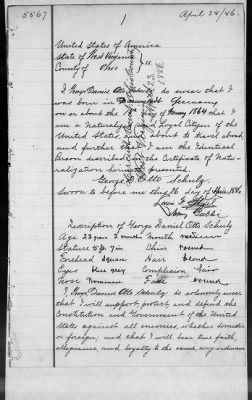 5567
April 28/86.
1
United States of America
State of West Virginia
County of Ohio } ss.
I George Daniel Otto Schulz do swear that I
was born in Darmstadt Germany
on or about the of 1864 that I
am a Naturalized and Legal Citizen of the
United States, about to travel abroad
and further that I am the Identical
Person described in the Certificate of Natu-
ralization herewith presented.
George D. Otto Schulz
Sworn to before me this 26 day of April 1886
Louis
Notary Public
Description of George Daniel Otto Schulz
Age 22 year 2 months Mouth medium
Stature 5 ft. 7 in Chin round
Forehead square Hair blond
Eyes blue grey Complexion fair
Nose Romanesc Face round
I George Daniel Otto Schulz do solemnly swear
that I will support, protect and defend the
Constitution and Government of the United
States against all enemies, whether domestic
or foreign; and that I will bear true faith,
allegiance and loyalty to the same, any ordinance